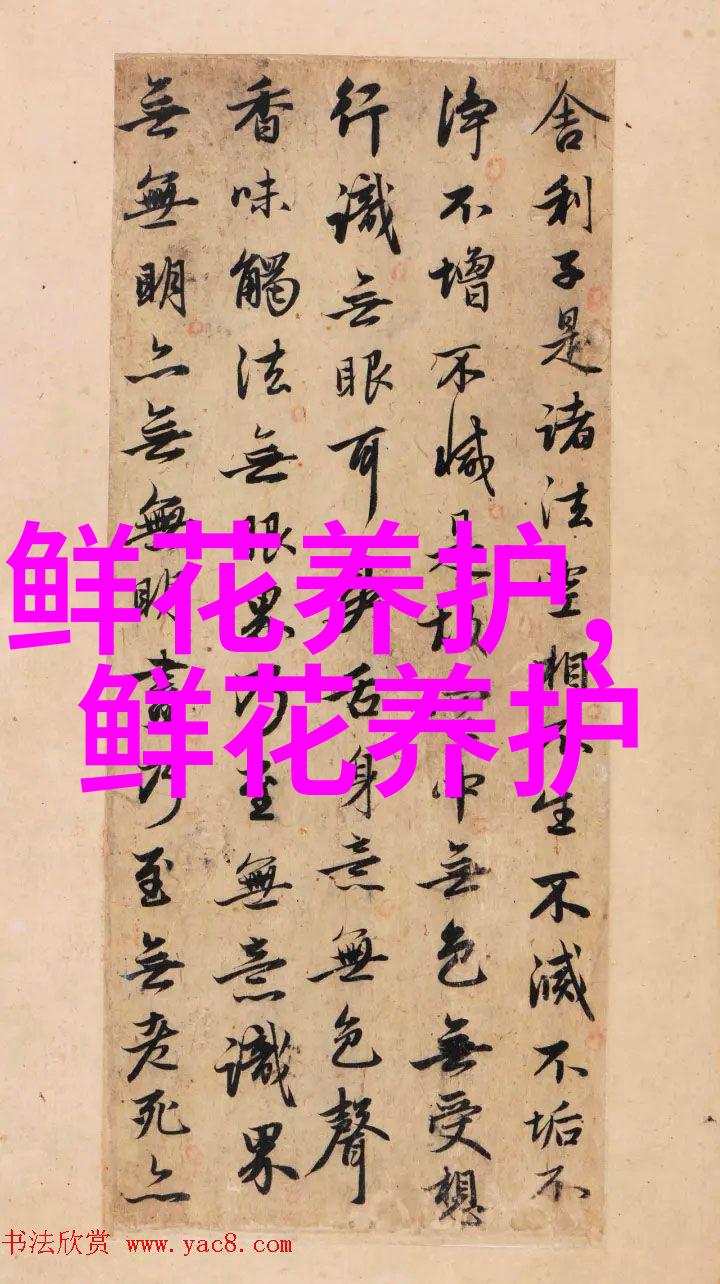 舍利子是諸法空相不生不滅不垢不
淨不增不減是故空中無色無受想
行識無眼耳鼻舌身意無色聲
香味觸法無眼界乃至無意識界
無無明亦無無明盡乃至無老死亦
鲜花养护,
鲜花养护
书法欣赏 www.yac8.com